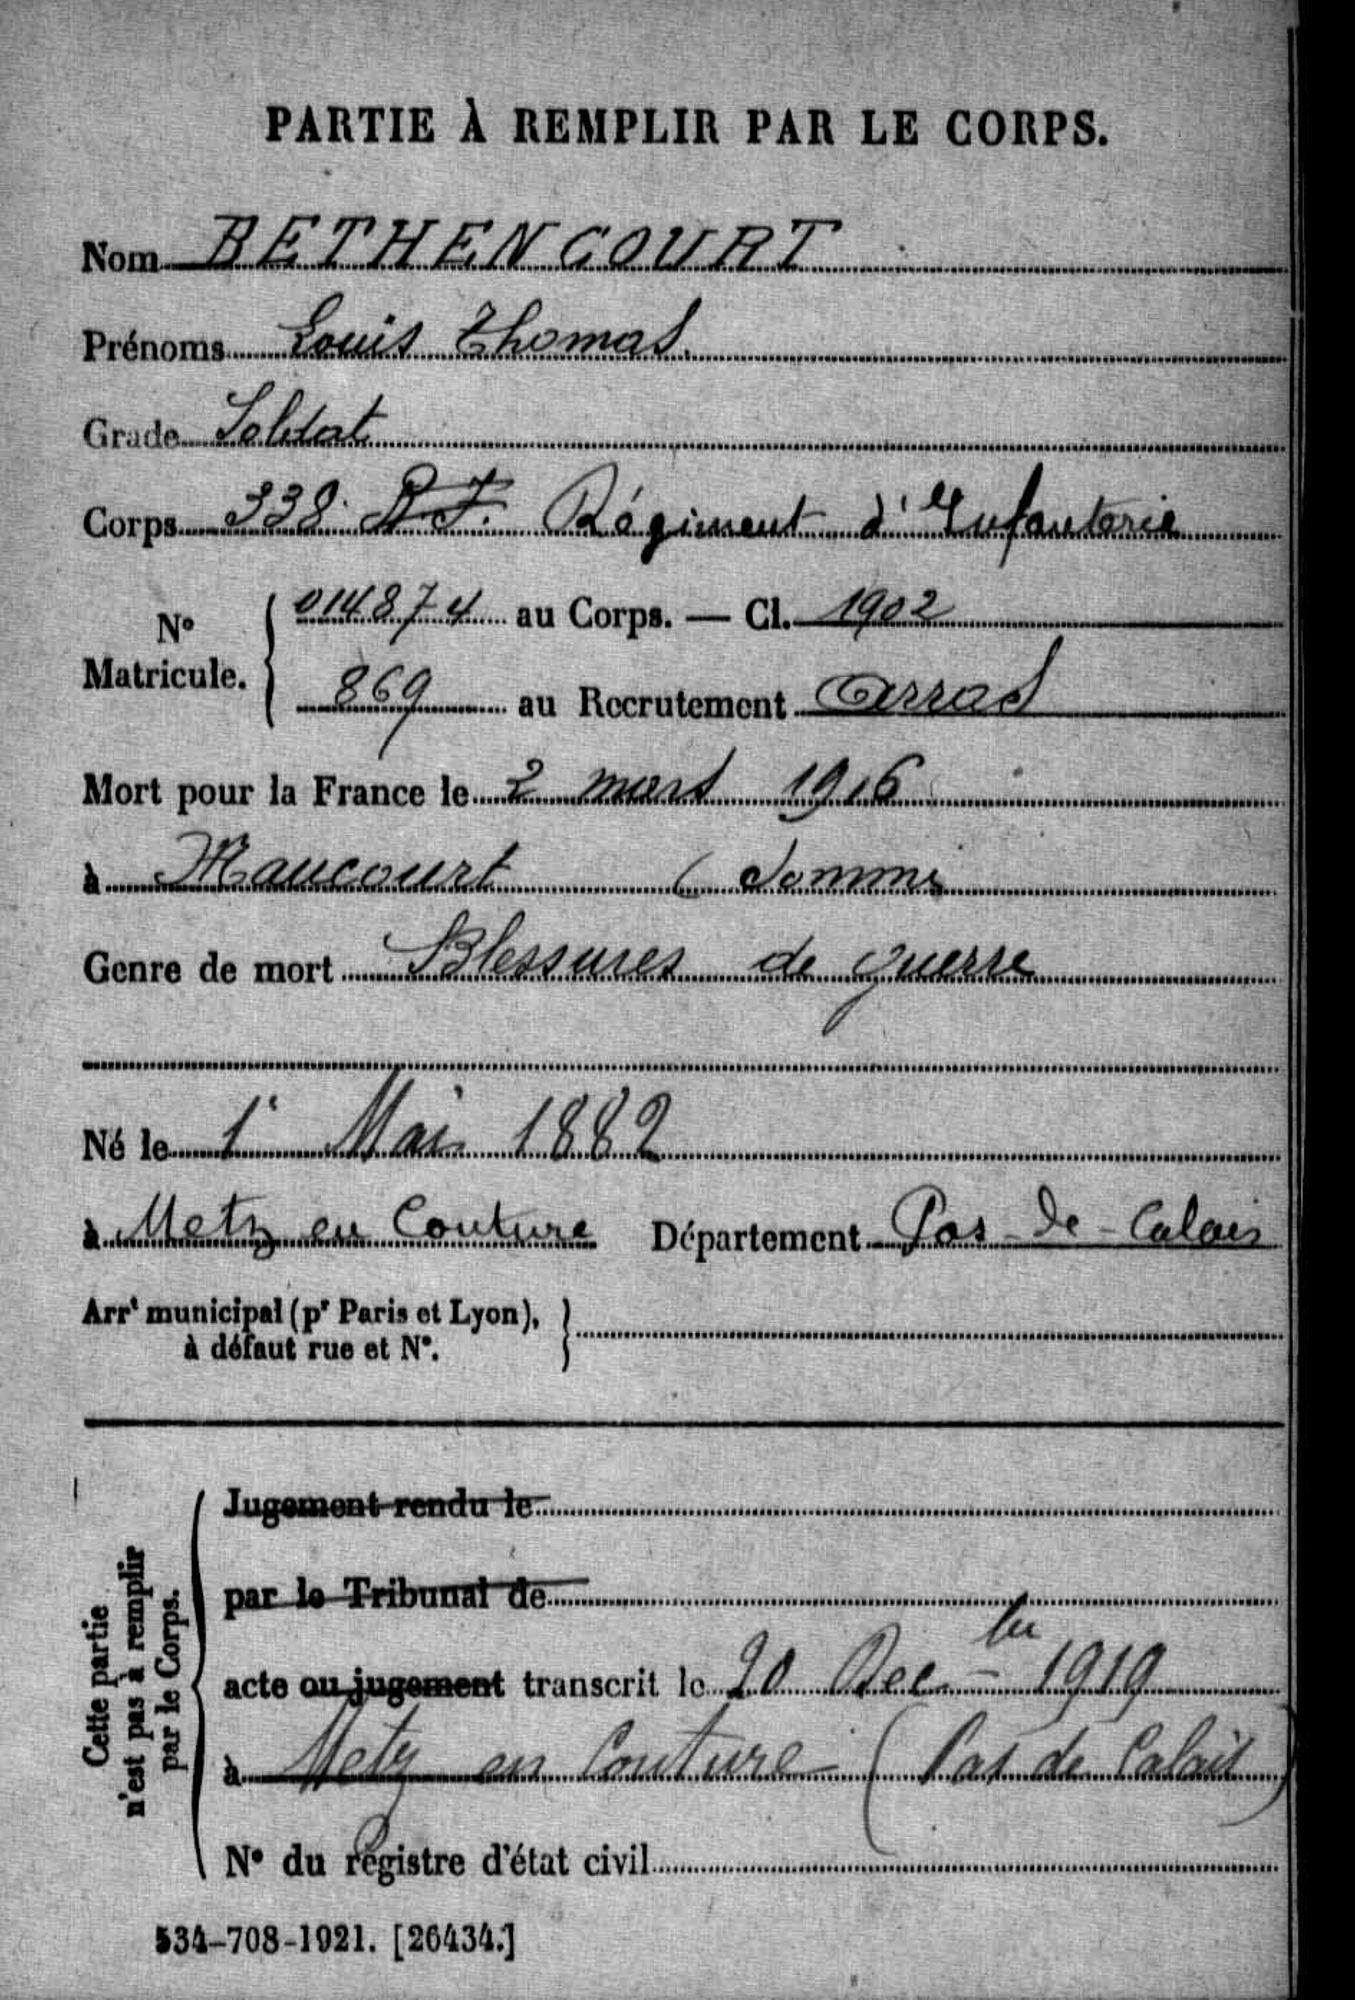 PARTIE À REMPLIR PAR LE CORPS.
Nom BETHENCOURT
Prénoms Louis Thomas.
Grade Soldat
Corps 338. R.I. Régiment d'Infanterie
N° Matricule. { 014874 au Corps. — Cl. 1902
869 au Recrutement Arras
Mort pour la France le 2 mars 1916
à Maucourt (Somme
Genre de mort Blessures de guerre
Né le 1er Mai 1882
à Metz en Couture Département Pas-de-Calais
Arrt municipal (pr Paris et Lyon), à défaut rue et N°. }
Cette partie n'est pas à remplir par le Corps.
Jugement rendu le
par le Tribunal de
acte ou jugement transcrit le 20 Decbre 1919
à Metz en Couture (Pas de Calais)
N° du registre d'état civil
534-708-1921. [26434.]